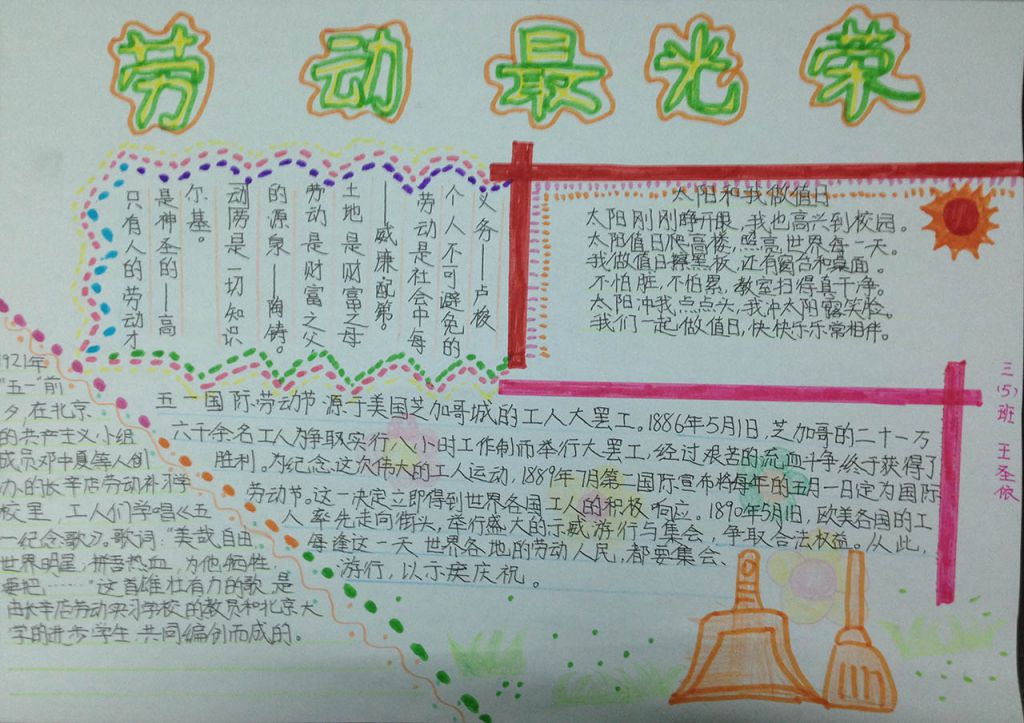 劳动最光荣
只有人的劳动才
是神圣的——高
尔基。
动劳是一切知识
的源泉——陶铸。
劳动是财富之父
土地是财富之母
——威廉配第。
劳动是社会中每
个人不可避免的
义务——卢梭
太阳和我做值日
太阳刚刚睁开眼,我也高兴到校园。
太阳值日爬高楼,照亮世界每一天。
我做值日擦黑板,还有窗台和桌面。
不怕脏,不怕累,教室扫得真干净。
太阳冲我点点头,我冲太阳露笑脸。
我们一起做值日,快快乐乐常相伴。
三(5)班 王圣依
五一国际劳动节源于美国芝加哥城的工人大罢工。1886年5月1日,芝加哥的二十一万
六千余名工人为争取实行八小时工作制而举行大罢工,经过艰苦的流血斗争,终于获得了
胜利。为纪念这次伟大的工人运动,1889年7月第二国际宣布将每年的五月一日定为国际
劳动节。这一决定立即得到世界各国工人的积极响应。1890年5月1日,欧美各国的工
人率先走向街头,举行盛大的示威游行与集会,争取合法权益。从此,
每逢这一天世界各地的劳动人民,都要集会、
游行,以示庆祝。
1921年
"五一"前
夕,在北京
的共产主义小组
成员邓中夏等人创
办的长辛店劳动补习学
校里,工人们学唱《五
一纪念歌》。歌词:"美哉自由,
世界明星,拼吾热血,为他牺牲,
要把……"这首雄壮有力的歌,是
由长辛店劳动实习学校的教员和北京大
学的进步学生共同编创而成的。